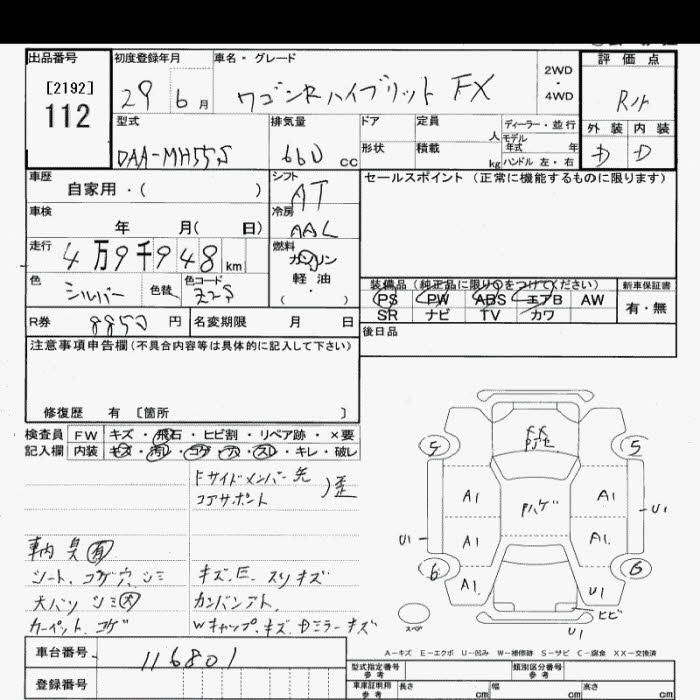 出品番号
[2192]
112
初度登録年月
29 6月
車名・グレード
ワゴンRハイブリット FX
2WD
・
4WD
評価点
R
外装 内装
D D
型式
DAA-MH55S
排気量
660 cc
ドア
定員
人
形状
積載
kg
ディーラー・並行
モデル
年式 年
ハンドル 左・右
車歴
自家用・( )
シフト
AT
車検
年 月( 日)
冷房
AAC
走行
4万9千948km
燃料
ガソリン
軽油
( ・ )
色
シルバー
色替
色コード
Z2S
R券 8850円
名変期限 月 日
セールスポイント (正常に機能するものに限ります)
装備品 (純正品に限り○をつけてください)
PS PW ABS エアB AW
SR ナビ TV カワ
新車保証書
有・無
後日品
注意事項申告欄(不具合内容等は具体的に記入して下さい)
修復歴 有 [箇所 ]
検査員 FW キズ・飛石・ヒビ割・リペア跡・×要
記入欄 内装 キズ・汚レ・コゲ・穴・スレ・キレ・破レ
Fサイドメンバー先
コアサポート
)歪
車内臭有
シート、コゲ穴、シミ
天バリ シミ大
カーペット、コゲ
キズ、E、スリキズ
カンバンアト、
Wキャップ、キズ、Dミラーキズ
XX
5 5
A1 Pハゲ A1
U1 U1
A1 A1
6 6
A1 U1
ヒビ
スペア
U1
A－キズ E－エクボ U－凹み W－補修跡 S－サビ C－腐食 XX－交換済
車台番号 116801
登録番号
型式指定番号
参考
類別区分番号
参考
車庫証明用
参考
長さ cm
幅 cm
高さ cm